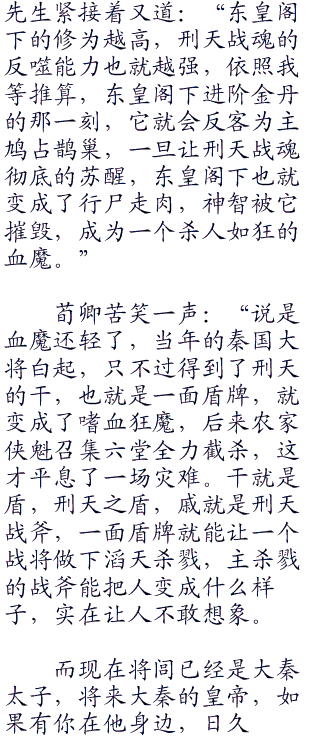 先生紧接着又道：“东皇阁
下的修为越高，刑天战魂的
反噬能力也就越强，依照我
等推算，东皇阁下进阶金丹
的那一刻，它就会反客为主
鸠占鹊巢，一旦让刑天战魂
彻底的苏醒，东皇阁下也就
变成了行尸走肉，神智被它
摧毁，成为一个杀人如狂的
血魔。”
荀卿苦笑一声：“说是
血魔还轻了，当年的秦国大
将白起，只不过得到了刑天
的干，也就是一面盾牌，就
变成了嗜血狂魔，后来农家
侠魁召集六堂全力截杀，这
才平息了一场灾难。干就是
盾，刑天之盾，戚就是刑天
战斧，一面盾牌就能让一个
战将做下滔天杀戮，主杀戮
的战斧能把人变成什么样
子，实在让人不敢想象。
而现在将闾已经是大秦
太子，将来大秦的皇帝，如
果有你在他身边，日久